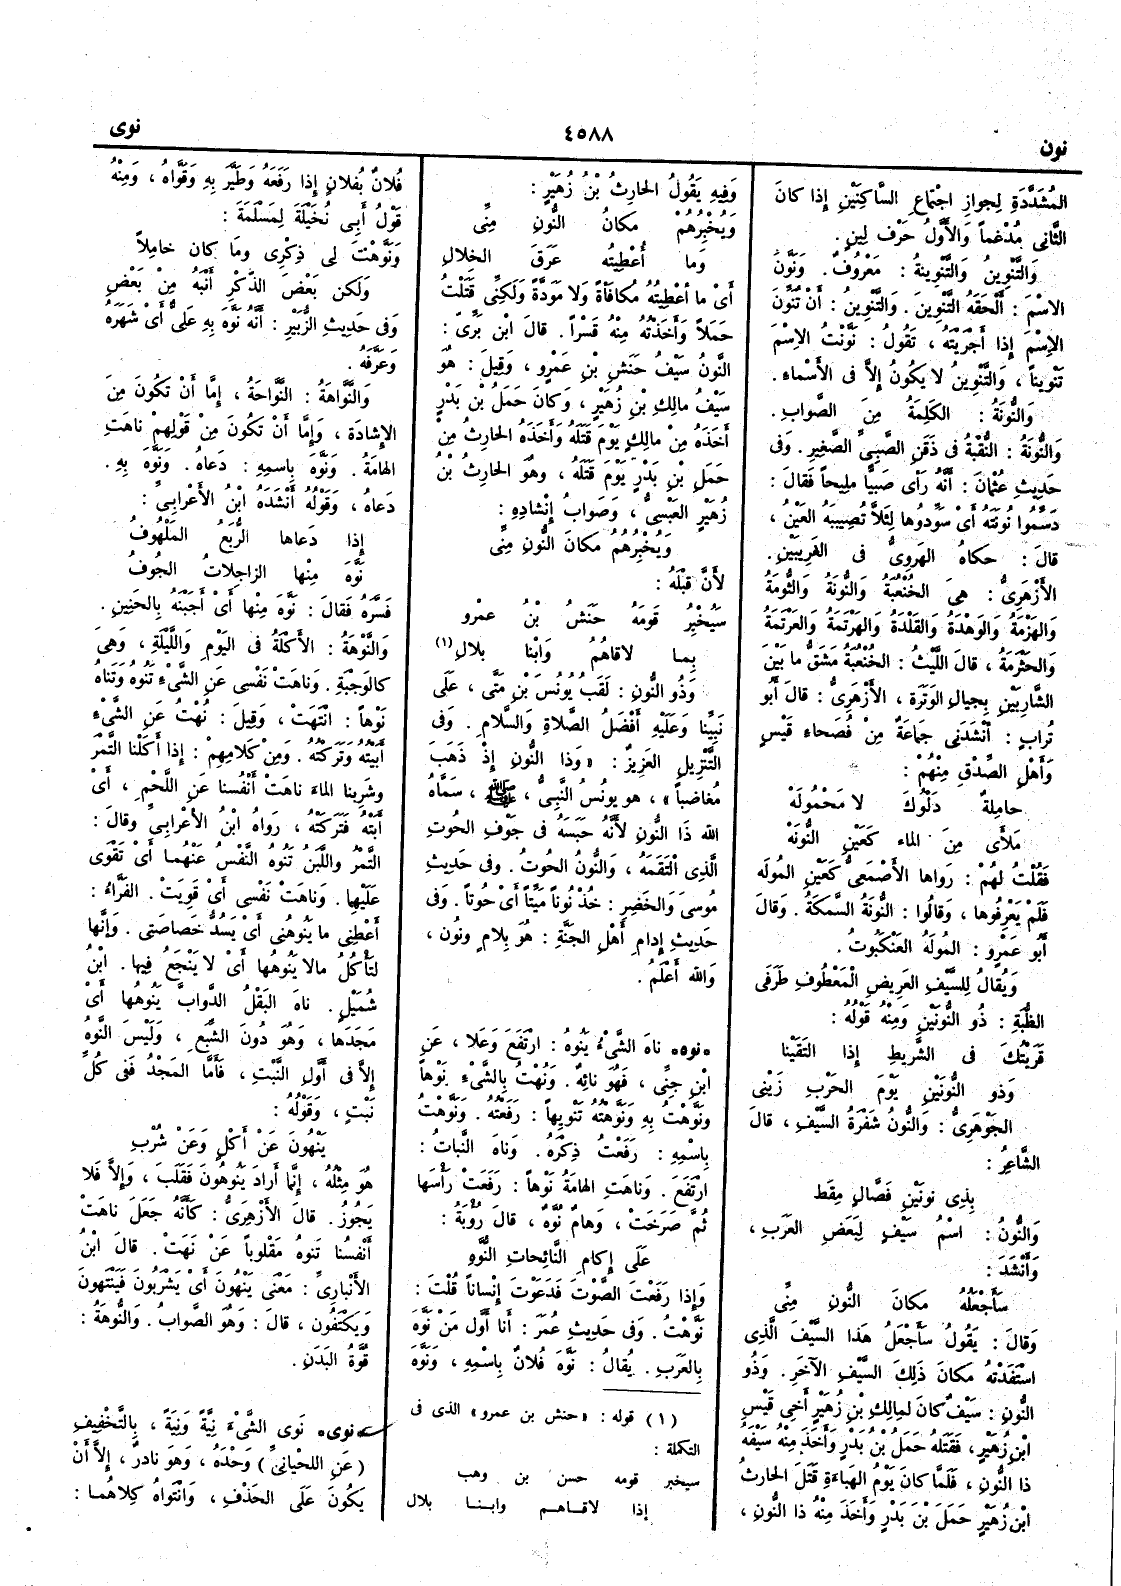 نون
٤٥٨٨
نوى
المُشَدَّدَةِ لِجوازِ اجْتِماعِ السَّاكِنَيْنِ إِذا كانَ
الثَّانِى مُدْغَماً وَالأَوَّلُ حَرْفَ لِينٍ .
وَالتَّنْوِينُ وَالتَّنْوِينةُ : مَعْرُوفٌ . وَنَوَّنَ
الاسْمَ : أَلْحَقَهُ التَّنْوِينَ . وَالتَّنْوِينُ : أَنْ تُنَوِّنَ
الاِسْمَ إِذا أَجْرَيْتَهُ ، تَقُولُ : نَوَّنْتُ الاِسْمَ
تَنْوِيناً ، وَالتَّنْوِينُ لا يَكُونُ إِلاَّ فى الأَسْماءِ .
وَالنُّونَةُ : الكَلِمَةُ مِنَ الصَّوابِ .
وَالنُّونَةُ : النُّقْبَةُ فى ذَقَنِ الصَّبِىِّ الصَّغِيرِ . وَفى
حَدِيثِ عُثْمانَ : أَنَّهُ رَأَى صَبِيًّا مَلِيحاً فَقالَ :
دَسِّمُوا نُونَتَهُ أَىْ سَوِّدُوها لِئَلاَّ تُصِيبَهُ العَيْنُ ،
قالَ : حَكاهُ الهَرَوِىُّ فى الغَرِيبَيْنِ .
الأَزْهَرِىُّ : هِىَ الخُنْعَبَةُ وَالنُّونَةُ وَالثُّومَةُ
وَالهَزْمَةُ وَالوَهْدَةُ وَالقَلْدَةُ وَالهَرْتَمَةُ وَالعَرْتَمَةُ
وَالحَثْرَمَةُ ، قالَ اللَّيْثُ : الخُنْعَبَةُ مَشَقُّ ما بَيْنَ
الشَّارِبَيْنِ بِحِيالِ الوَتَرَةِ ، الأَزْهَرِىُّ : قالَ أَبُو
تُرابٍ : أَنْشَدَنِى جَماعَةٌ مِنْ فُصَحاءِ قَيْسٍ
وَأَهْلِ الصِّدْقِ مِنْهُمْ :
حامِلةٌ دَلْوُكَ لا مَحْمُولَهْ
مَلأَى مِنَ الماءِ كَعَيْنِ النُّونَهْ
فَقُلْتُ لَهُمْ : رَواها الأَصْمَعِىُّ كَعَيْنِ المُولَه
فَلَمْ يَعْرِفُوها ، وَقالُوا : النُّونَةُ السَّمَكَةُ . وَقالَ
أَبُو عَمْرٍو : المُولَهُ العَنْكَبُوتُ .
وَيُقالُ لِلسَّيْفِ العَرِيضِ الْمَعْطُوفِ طَرَفَىِ
الظُّبَةِ : ذُو النُّونَيْنِ وَمِنْهُ قَوْلُهُ :
قَرَيْتُكَ فى الشَّرِيطِ إِذا التَقَيْنا
وَذو النُّونَيْنِ يَوْمَ الحَرْبِ زَيْنِى
الجَوْهَرِىُّ : وَالنُّونُ شَفْرَةُ السَّيْفِ ، قالَ
الشَّاعِرُ :
بِذِى نونَيْنِ فَصَّالٍ مِقَط
وَالنُّونُ : اسْمُ سَيْفٍ لِبَعَضِ العَرَبِ ،
وَأَنْشَدَ :
سَأَجْعَلُهُ مَكانَ النُّونِ مِنِّى
وَقالَ : يَقُولُ سَأَجْعَلُ هَذا السَّيْفَ الَّذِى
اسْتَفَدْتُهُ مَكانَ ذَلِكَ السَّيْفِ الآخَرِ . وَذُو
النُّونِ : سَيْفٌ كانَ لِمالِكِ بْنِ زُهَيْرٍ أَخِى قَيْسِ
ابْنِ زُهَيْرٍ ، فَقَتَلَهُ حَمَلُ بْنُ بَدْرٍ وَأَخَذَ مِنْهُ سَيْفَهُ
ذا النُّونِ ، فَلَمَّا كانَ يَوْمُ الهَباءَةِ قَتَلَ الحارِثُ
ابْنُ زُهَيْرٍ حَمَلَ بْنَ بَدْرٍ وَأَخَذَ مِنْهُ ذا النُّونِ ،
وَفِيهِ يَقُولُ الحارِثُ بْنُ زُهَيْرٍ :
وَيُخْبِرُهُمْ مَكانُ النُّونِ مِنِّى
وَما أُعْطِيتُه عَرَقَ الخِلالِ
أَىْ ما أُعْطِيتُهُ مُكافَأَةً وَلا مَوَدَّةً وَلَكِنِّى قَتَلْتُ
حَمَلاً وَأَخَذْتُهُ مِنْهُ قَسْراً . قالَ ابْن بَرِّىّ :
النُّونُ سَيْفُ حَنَشِ بْنِ عَمْرٍو ، وَقِيلَ : هُوَ
سَيْفُ مالِكِ بْنِ زُهَيْرٍ ، وَكانَ حَمَلُ بْنُ بَدْرٍ
أَخَذَهُ مِنْ مالِكٍ يَوْمَ قَتَلَهُ وَأَخَذَهُ الحارِثُ مِنْ
حَمَلِ بْنِ بَدْرٍ يَوْمَ قَتَلَهُ ، وَهُوَ الحارِثُ بْنُ
زُهَيْرٍ العَبْسِىُّ ، وَصَوابُ إِنْشادِهِ :
وَيُخْبِرُهُمُ مَكانَ النُّونِ مِنِّى
لأَنَّ قَبْلَهُ :
سَيُخْبِرُ قَومَهُ حَنَشُ بْنُ عمْرو
بِما لاقاهُمُ وَابْنا بلالِ (١)
وَذُو النُّونِ : لَقَبُ يُونُسَ بْنِ مَتَّى ، عَلَى
نَبِيِّنا وَعَلَيْهِ أَفْضَلُ الصَّلاةِ وَالسَّلامِ . وَفى
التَّنْزِيلِ العَزِيزِ : « وَذا النُّونِ إِذْ ذَهَبَ
مُغاضِباً » ، هو يونُسُ النَّبِىُّ ، ﷺ ، سَمَّاهُ
الله ذَا النُّونِ لأَنَّهُ حَبَسَهُ فى جَوْفِ الحُوتِ
الَّذِى الْتَقَمَهُ ، وَالنُّونُ الحُوتُ . وَفى حَدِيثِ
مُوسَى وَالخَضِرِ : خُذْ نُوناً مَيِّتاً أَىْ حُوتاً . وَفى
حَدِيثِ إِدامِ أَهْلِ الجَنَّةِ : هُوَ بِلامٍ وَنُون ،
وَالله أَعْلَمُ .
• نوه • ناهَ الشَّىْءُ يَنُوهُ : ارْتَفَعَ وَعَلا ، عَنِ
ابْنِ جِنِّى ، فَهُوَ نائِهٌ . وَنُهْتُ بِالشَّىْءِ نَوْهاً
وَنَوَّهْتُ بِهِ وَنَوَّهْتُهُ تَنْوِيهاً : رَفَعْتُهُ . وَنَوَّهْتُ
بِاسْمِهِ : رَفَعْتُ ذِكْرَهُ . وَناهَ النَّباتُ :
ارْتَفَعَ . وَناهَتِ الهامَةُ نَوْهاً : رَفَعَتْ رَأْسَها
ثُمَّ صَرَخَتْ ، وَهامٌ نُوَّهٌ ، قالَ رُؤْبَةُ :
عَلَى إِكامِ النَّائِحاتِ النُّوَّهِ
وَإِذا رَفَعْتَ الصَّوْتَ فَدَعَوْتَ إِنْساناً قُلْتَ :
نَوَّهْتُ . وَفى حَدِيثِ عُمَرَ : أَنا أَوَّل مَنْ نَوَّهَ
بِالعَرَبِ . يُقالُ : نَوَّهَ فُلانٌ بِاسْمِهِ ، وَنَوَّهَ
(١) قوله : «حنش بن عمرو» الذى فى
التكملة :
سيخبر قومه حسن بن وهب
إذا لاقاهم وابنا بلال
فُلانٌ بُفلانٍ إِذا رَفَعَهُ وَطَيَّرَ بِهِ وَقَوَّاهُ ، وَمِنْهُ
قَوْلُ أَبِى نُخَيْلَةَ لِمَسْلَمَةَ :
وَنَوَّهْتَ لِى ذِكْرِى وَمَا كان خامِلاً
وَلكن بَعْضَ الذِّكْرِ أَنْبَهُ مِنْ بَعْضِ
وَفى حَدِيثِ الزُّبَيْرِ : أَنَّهُ نَوَّهَ بِهِ عَلِىٌّ أَىْ شَهَرَهُ
وَعَرَّفَهُ .
وَالنَّوَّاهَةُ : النَّوَّاحَةُ ، إِمَّا أَنْ تَكُونَ مِنَ
الإِشادَة ، وَإِمَّا أَنْ تَكُونَ مِنْ قَوْلِهِمْ ناهَتِ
الهامَةُ . وَنَوَّهَ بِاسمِهِ : دَعاهُ . وَنَوَّهَ بِهِ .
دَعاهُ ، وَقَوْلُهُ أَنْشَدَهُ ابْنُ الأَعْرابِىِّ :
إِذا دَعاها الرُّبَعُ المَلْهُوفُ
نَوَّهَ مِنْها الزاجِلاتُ الجُوفُ
فَسَّرَهُ فَقالَ : نَوَّهَ مِنْها أَىْ أَجَبْنَهُ بِالحَنِينِ .
وَالنَّوْهَةُ : الأَكْلَةُ فى اليَوْمِ وَاللَّيْلَةِ ، وَهِىَ
كالوَجْبَةِ . وَناهَتْ نَفْسِى عَنِ الشَّىْءِ تَنُوهُ وَتَناهُ
نَوْهاً : انْتَهَتْ ، وَقِيلَ : نُهْتُ عَنِ الشَّىْءِ
أَبَيْتُهُ وَتَرَكْتُهُ . وَمِنْ كَلامِهِمْ : إِذا أَكَلْنا التَّمْرَ
وشَرِبنا الماءَ ناهَتْ أَنْفُسُنا عَنِ اللَّحْمِ ، أَىْ
أَبَتْهُ فَتَرَكَتْهُ ، رَواهُ ابْنُ الأَعْرابِىِّ وَقالَ :
التَّمْرُ وَاللَّبَنُ تَنُوهُ النَّفْسُ عَنْهُما أَىْ تَقْوَى
عَلَيْهِا . وَناهَتْ نَفْسِى أَىْ قَوِيَتْ . الفَرَّاءُ :
أَعْطِنِى ما يَنُوهُنِى أَىْ يَسُدُّ خَصاصَتِى . وَإِنَّها
لَتَأْكُلُ مالا يَنُوهُها أَىْ لا يَنْجَعُ فِيها . ابْنُ
شُمَيْلٍ . ناهَ البَقْلُ الدَّوابَّ يَنُوهُها أَىْ
مَجَدَها ، وَهُوَ دُونَ الشَّبَعِ ، وَلَيْسَ النَّوْهُ
إِلاَّ فى أَوَّلِ النَّبْتِ ، فَأَمَّا المَجْدُ فَفى كُلِّ
نَبْتٍ ، وَقَوْلُهُ :
يَنْهُونَ عَنْ أَكْلٍ وَعَنْ شُرْبِ
هُوَ مِثْلُه ، إِنَّما أَرادَ يَنُوهُونَ فَقَلَبَ ، وَإِلاَّ فَلا
يَجُوزُ . قالَ الأَزْهَرِىُّ : كَأَنَّهُ جَعَلَ ناهَتْ
أَنْفُسُنا تَنوهُ مَقْلُوباً عَنْ نَهَتْ . قالَ ابْنُ
الأَنْبارِىِّ : مَعْنَى يَنْهُونَ أَىْ يَشْرَبُونَ فَيَنْتَهونَ
وَيَكْتَفُون ، قالَ : وَهُوَ الصَّوابُ . وَالنُّوهَةُ :
قُوَّةُ البَدَنِ .
• نوى • نَوَى الشَّىْءَ نِيَّةً وَنِيَةً ، بِالتَّخْفِيفِ
(عَنِ اللحْيانِىِّ) وَحْدَهُ ، وَهُوَ نادِرٌ ، إِلاَّ أَنْ
يَكُونَ عَلَى الحَذْفِ ، وَانْتَواهُ كِلاهُما :